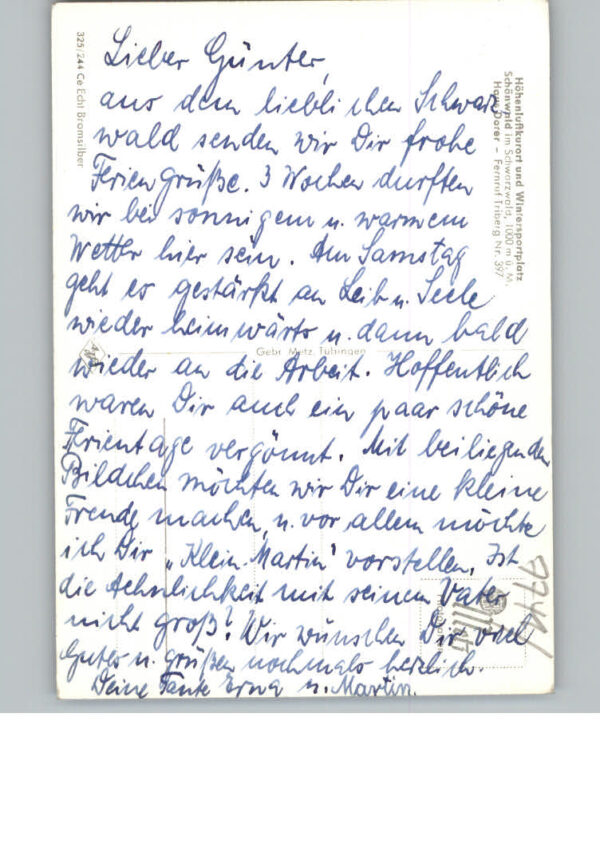 Lieber Günter,
aus dem lieblichen Schwarz
wald senden wir Dir frohe
Feriengrüße. 3 Wochen durften
wir bei sonnigem u. warmem
Wetter hier sein. Am Samstag
geht es gestärkt an Leib u. Seele
wieder heimwärts u. dann bald
wieder an die Arbeit. Hoffentlich
waren Dir auch ein paar schöne
Ferientage vergönnt. Mit beiliegenden
Bildchen möchten wir Dir eine kleine
Freude machen, u. vor allem möchte
ich Dir „Klein-Martin" vorstellen. Ist
die Aehnlichkeit mit seinem Vater
nicht groß? Wir wünschen Dir viel
Gutes u. grüßen nochmals herzlich.
Deine Tante Erna u. Martin.
325/244 Ce Echt Bromsilber
Höhenluftkurort und Wintersportplatz
Schönwald im Schwarzwald, 1000 m ü. M.
Haus Dorer – Fernruf Triberg Nr. 397
Gebr. Metz, Tübingen